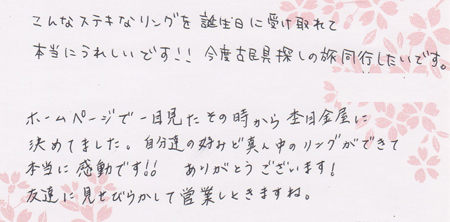 こんなステキなリングを誕生日に受け取れて
本当にうれしいです!! 今度古民具探しの旅同行したいです。
ホームページで一目見たその時から杢目金屋に
決めてました。自分達の好みど真ん中のリングができて
本当に感動です!! ありがとうございます!
友達に見せびらかして営業しときますね。